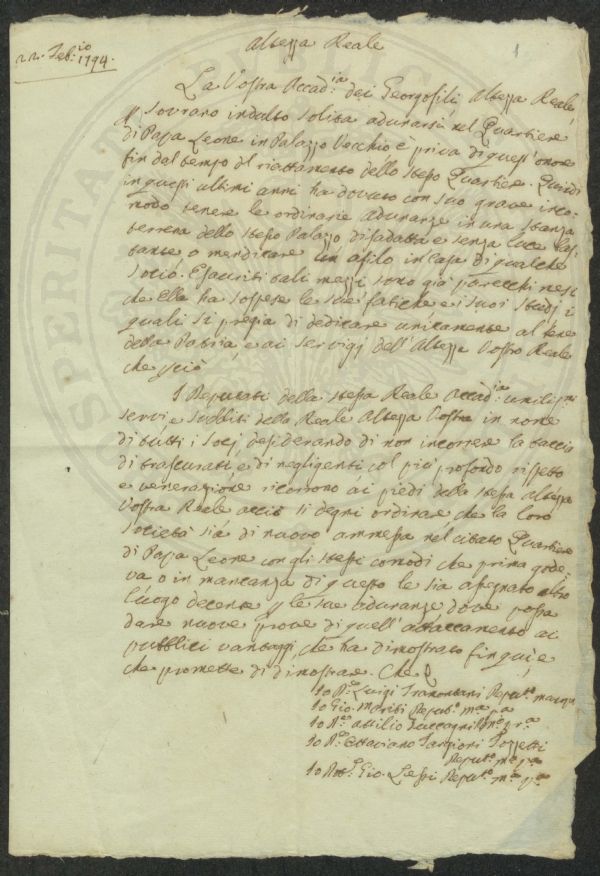 22. Feb:io 1794.
1
Altezza Reale
La Vostra Accad:ia dei Georgofili, Altezza Reale,
p sovrano indulto solita adunarsi nel Quartiere
di Papa Leone in Palazzo Vecchio è priva di quest'onore
fin dal tempo del riattamento dello stesso Quartiere. Quindi
in questi ultimi anni ha dovuto con suo grave inco-
modo tenere le ordinarie adunanze in una stanza
terrena dello stesso Palazzo disadatta e senza luce bas-
tante o mendicare un asilo in casa di qualche
socio. Esauriti tali mezzi sono già parecchi mesi
che Ella ha sospese le sue fatiche e i suoi studj i
quali si pregia di dedicare unicamente al bene
della Patria, e ai servigj dell'Altezza Vostra Reale
che perciò
I Deputati della stessa Reale Accad:ia umiliss:mi
servi e sudditi della Reale Altezza Vostra in nome
di tutti i socj desiderando di non incorrere la taccia
di trascurati e di negligenti col più profondo rispetto
e venerazione ricorrono ai piedi della stessa Altezza
Vostra Reale acciò si degni ordinare che la loro
società sia di nuovo ammessa nel citato Quartiere
di Papa Leone con gli stessi comodi che prima gode-
va o in mancanza di questo le sia assegnato altro
luogo decente p le sue adunanze dove possa
dare nuove prove di quell'attaccamento ai
pubblici vantaggi, che ha dimostrato fin qui e
che promette di dimostrare. Che
Io Luigi Tramontani Deput:o
Io Gio. Mariti Deput:o m:o p:a
Io Attilio Zuccagni m:o p:a
Io Ottaviano Targioni Tozzetti
Deput:o m:o p:a
Io Gio. Lessi Deput:o m:o p:a